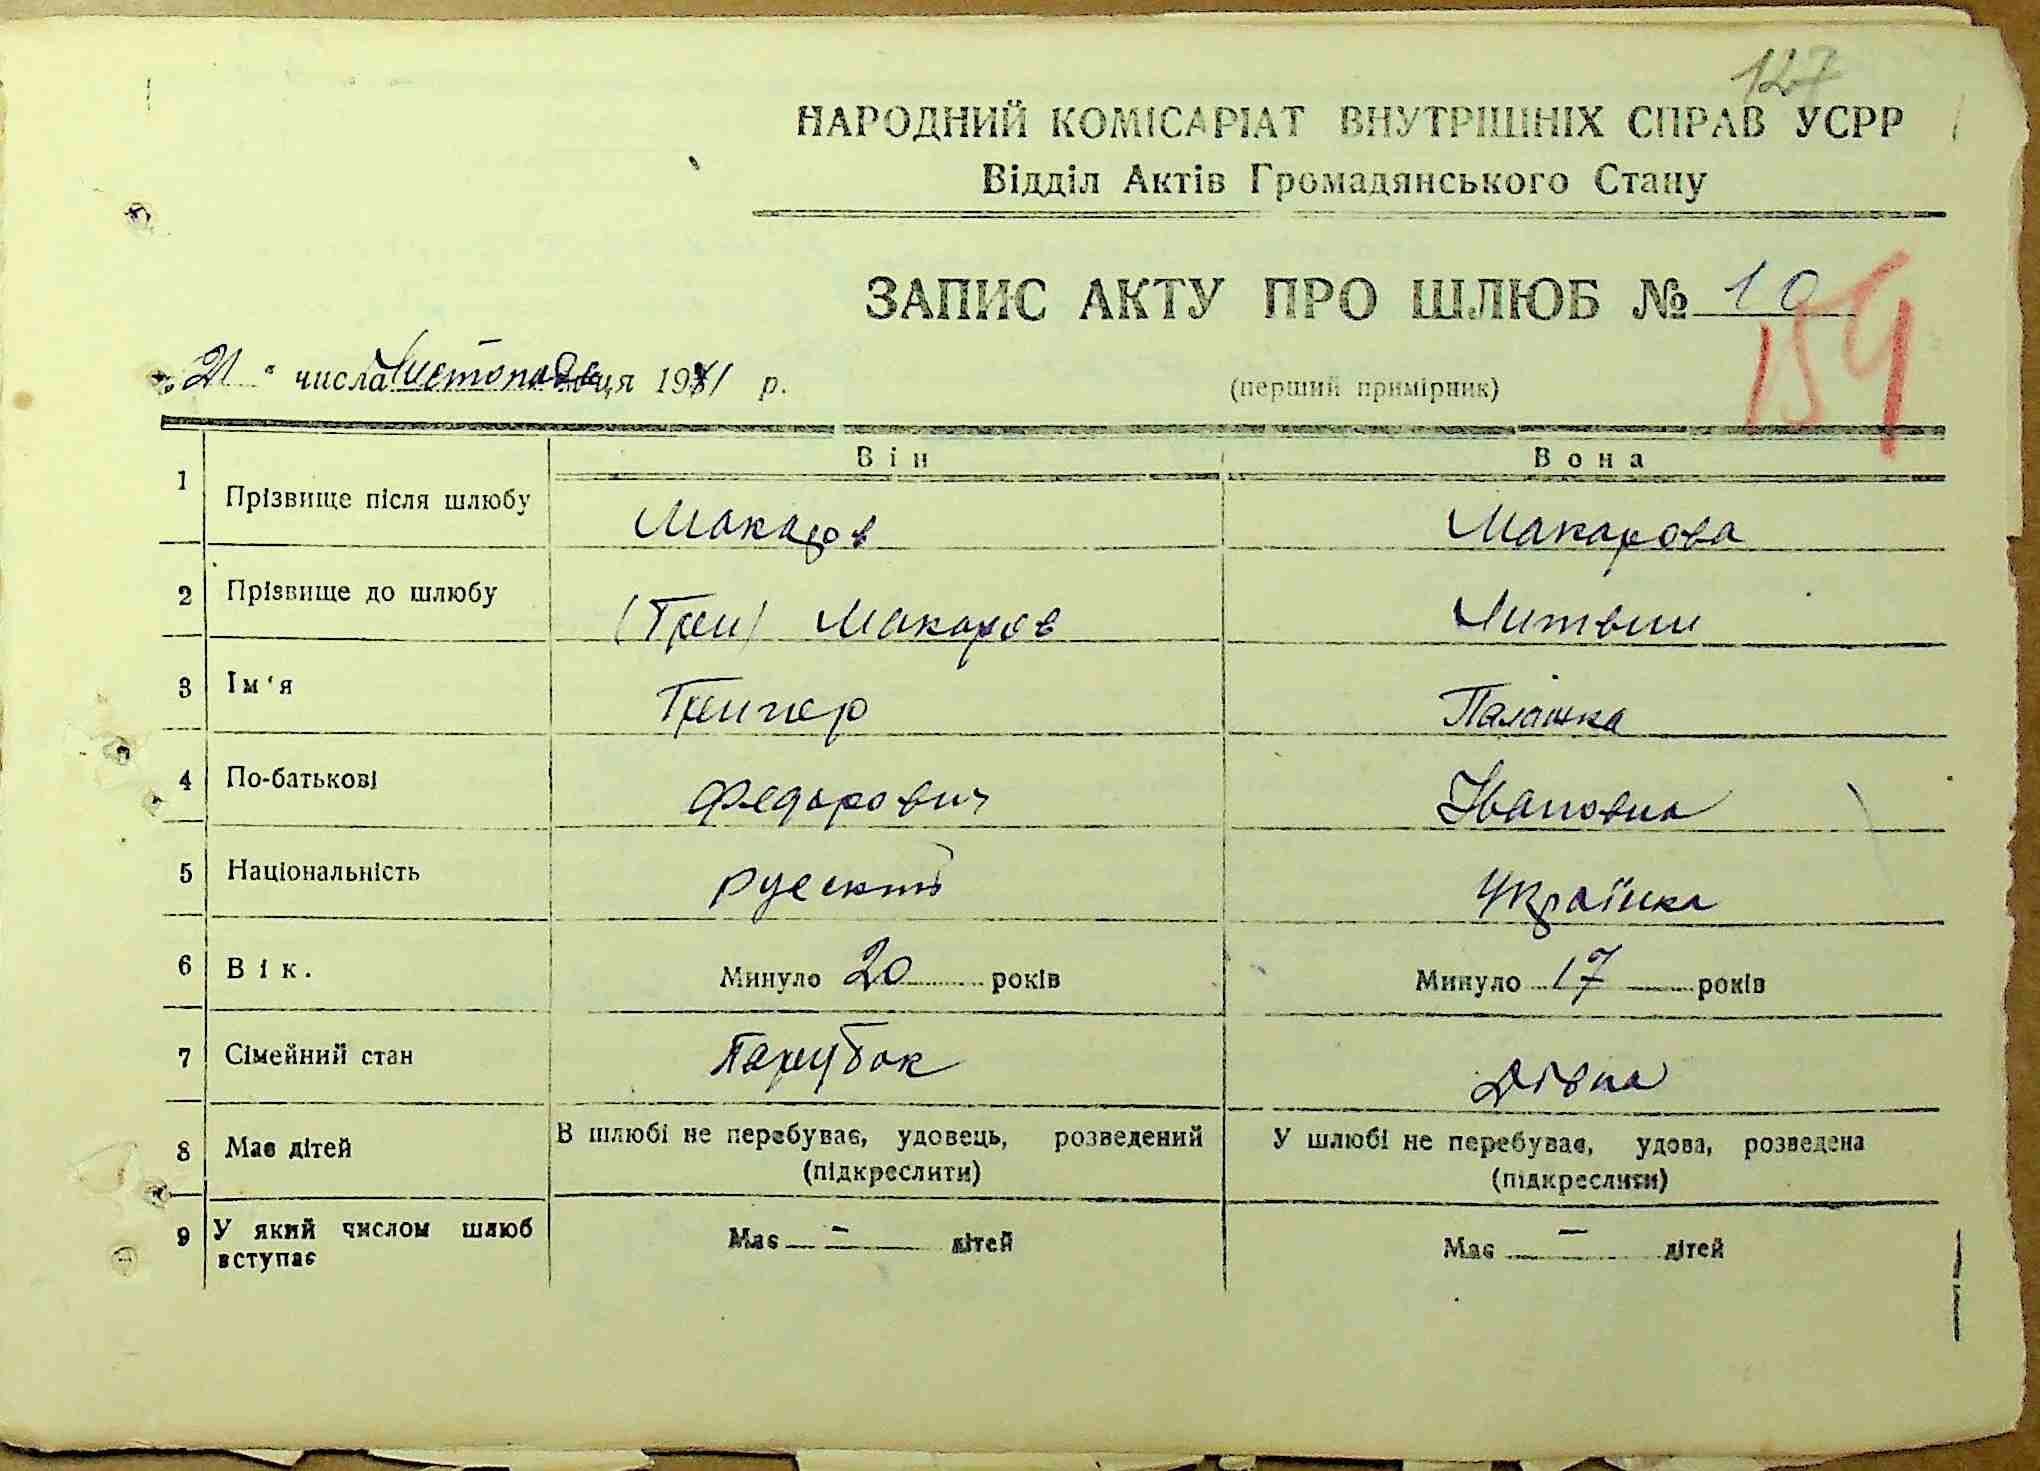 127
НАРОДНИЙ КОМІСАРІАТ ВНУТРІШНІХ СПРАВ УСРР
Відділ Актів Громадянського Стану
ЗАПИС АКТУ ПРО ШЛЮБ № 10
159
„21" числа Листопада ця 1941 р. (перший примірник)
Він Вона
1 Прізвище після шлюбу Макаров Макарова
2 Прізвище до шлюбу (Гри) Макаров Литвин
3 Ім'я Григор Палажка
4 По-батькові Федорович Івановна
5 Національність руський Українка
6 Вік. Минуло 20 років Минуло 17 років
7 Сімейний стан Парубок Дівка
8 Має дітей В шлюбі не перебуває, удовець, розведений (підкреслити) У шлюбі не перебуває, удова, розведена (підкреслити)
9 У який числом шлюб вступає Має – дітей Має – дітей